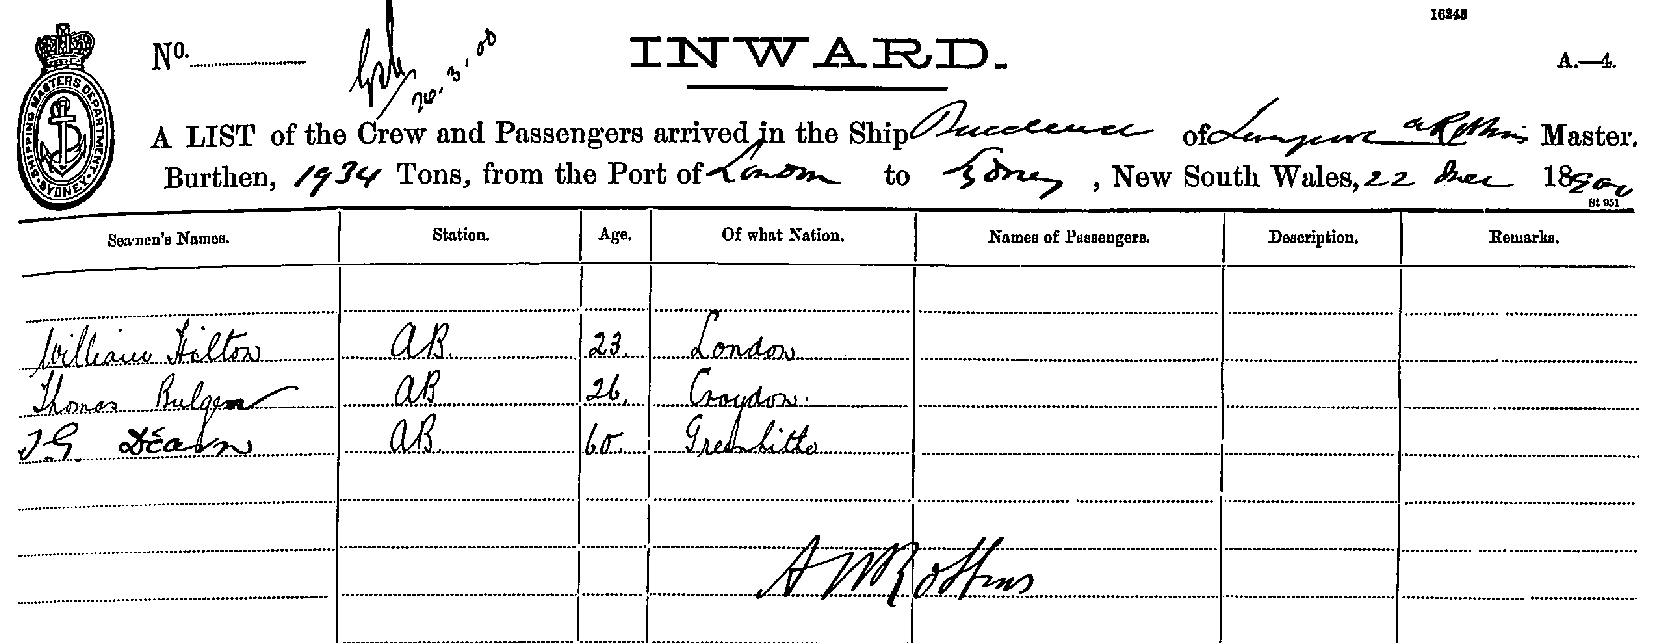 16248
No. INWARD. A.—4.
26.3.00
SHIPPING MASTERS DEPARTMENT SYDNEY
A LIST of the Crew and Passengers arrived in the Ship of Master.
Burthen, 1934 Tons, from the Port of London to Sydney, New South Wales, 22 18900
St 951
Seamen's Names. Station. Age. Of what Nation. Names of Passengers. Description. Remarks.
William Hilton AB. 23. London
Thomas Bulgen AB 26. Croydon.
T.G. Deason AB. 60. Greenhithe
A W Robbins